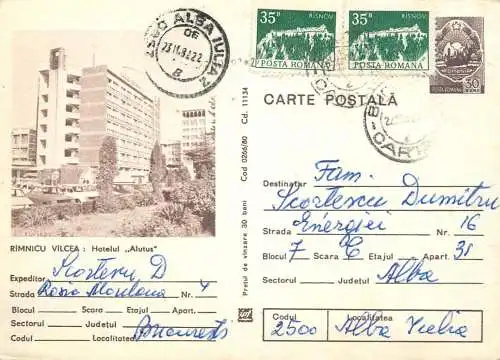 35B RÎSNOV
POSTA ROMANA
35B RÎSNOV
POSTA ROMANA
ALBA IULIA
CARTE POȘTALĂ
RÎMNICU VÎLCEA : Hotelul „Alutus"
Expeditor Scorțescu D
Strada Nr. 4
Blocul Scara Etajul Apart.
Sectorul Județul
Codul Localitatea București
Cod 0266/80 Cd. 11134
Prețul de vînzare 30 bani
Fam.
Destinatar Scorțescu Dumitru
Strada Energiei Nr. 16
Blocul 7 Scara C Etajul Apart. 31
Sectorul Județul Alba
Codul Localitatea
2500 Alba Iulia